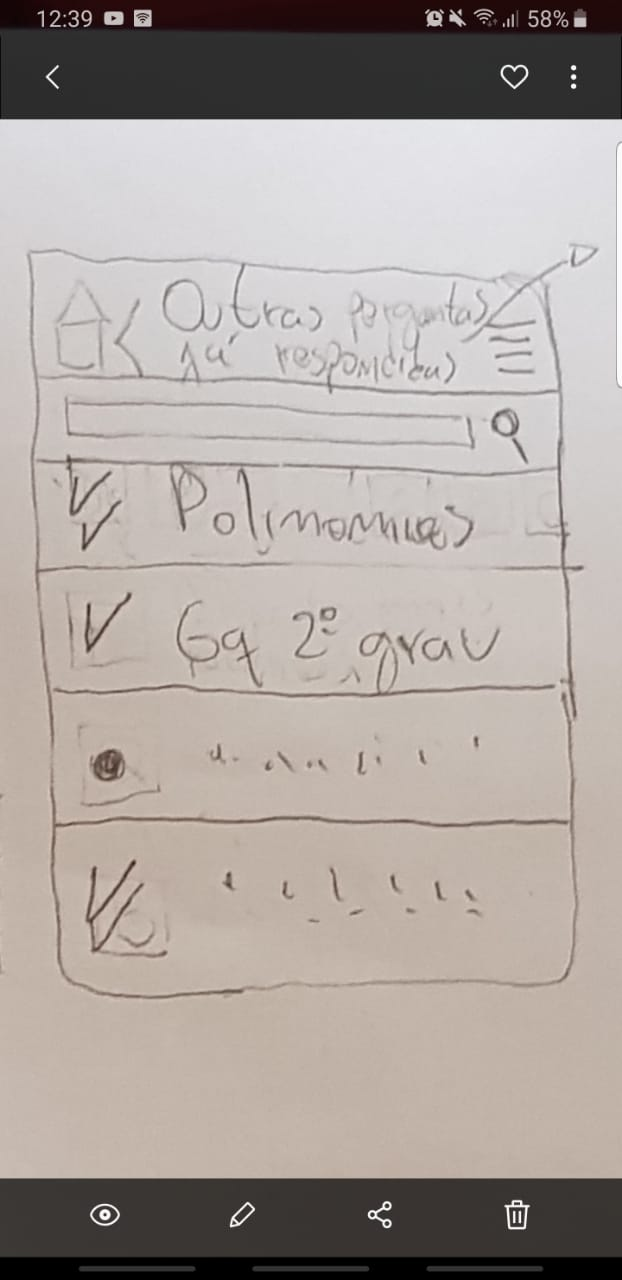 12:39
58%
Outras perguntas
já respondidas
Polinômios
Eq 2º grau